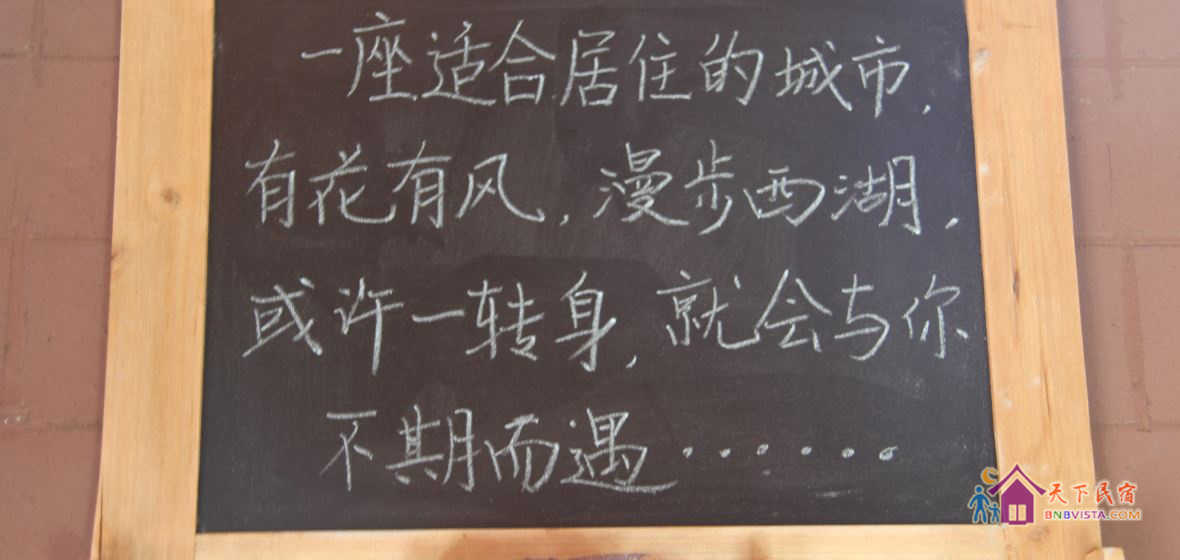 一座适合居住的城市,
有花有风,漫步西湖,
或许一转身,就会与你
不期而遇······
天下民宿
BNBVISTA.COM